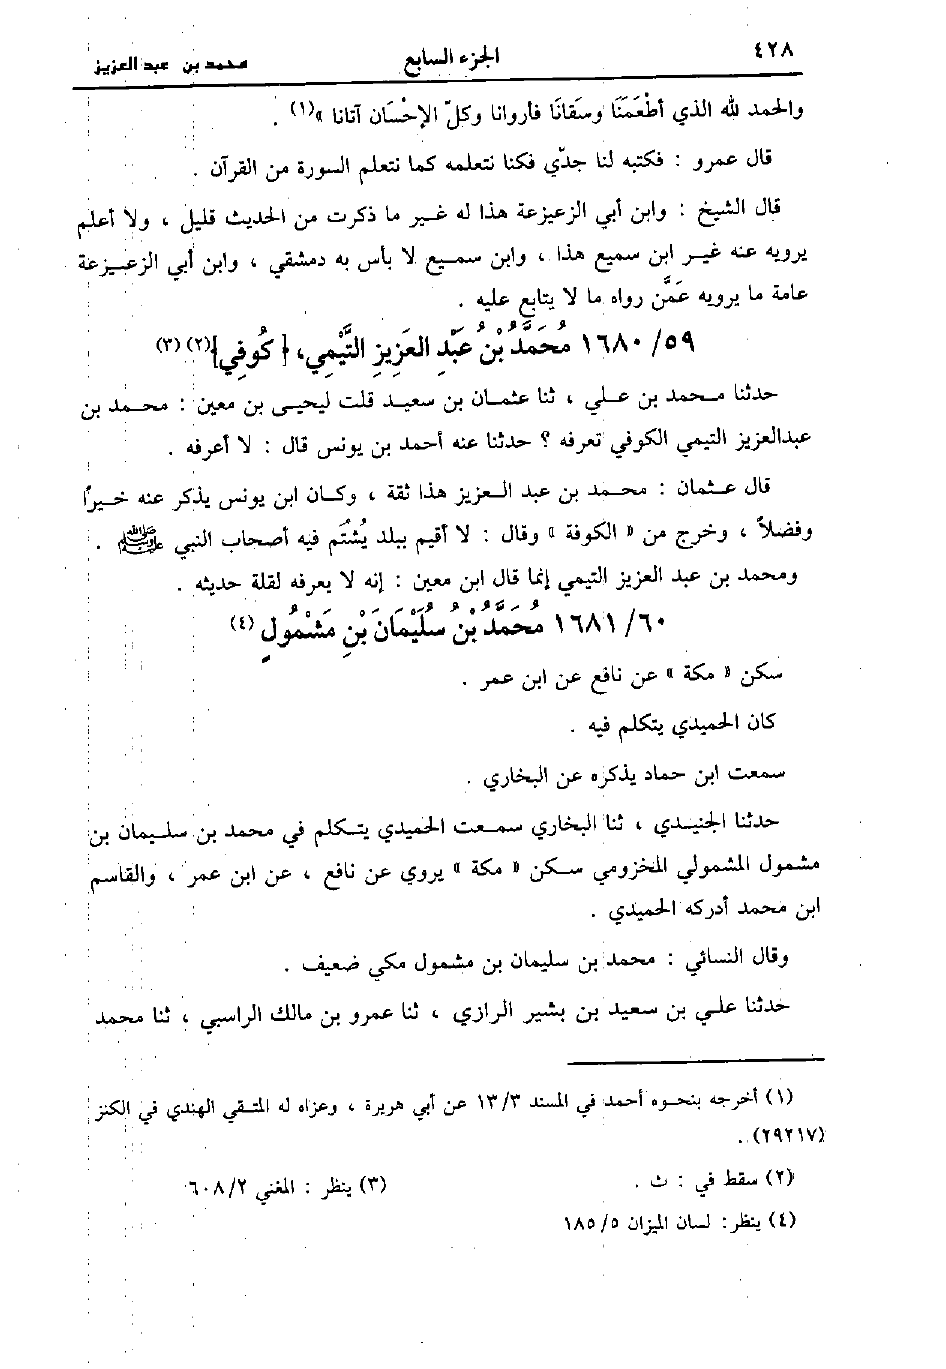 ٤٢٨ الجزء السابع محمد بن عبد العزيز
والحمد لله الذي أطْعَمَنَا وسَقانَا فأروانا وكلّ الإحْسَان آتانا »(١) .
قال عمرو : فكتبه لنا جدّي فكنا نتعلمه كما نتعلم السورة من القرآن .
قال الشيخ : وابن أبي الزعيزعة هذا له غير ما ذكرت من الحديث قليل ، ولا أعلم
يرويه عنه غير ابن سميع هذا ، وابن سميع لا بأس به دمشقي ، وابن أبي الزعيزعة
عامة ما يرويه عَمَّن رواه ما لا يتابع عليه .
٥٩/ ١٦٨٠ مُحَمَّدُ بْنُ عَبْدِ العَزِيزِ التَّيْمِي، { كُوفِي}(٢) (٣)
حدثنا محمد بن علي ، ثنا عثمان بن سعيد قلت ليحيى بن معين : محمد بن
عبدالعزيز التيمي الكوفي تعرفه ؟ حدثنا عنه أحمد بن يونس قال : لا أعرفه .
قال عثمان : محمد بن عبد العزيز هذا ثقة ، وكان ابن يونس يذكر عنه خيرًا
وفضلاً ، وخرج من « الكوفة » وقال : لا أقيم ببلد يُشْتَم فيه أصحاب النبي ﷺ .
ومحمد بن عبد العزيز التيمي إنما قال ابن معين : إنه لا يعرفه لقلة حديثه .
٦٠/ ١٦٨١ مُحَمَّدُ بْنُ سُلَيْمَانَ بْنِ مَشْمُولٍ (٤)
سكن « مكة » عن نافع عن ابن عمر .
كان الحميدي يتكلم فيه .
سمعت ابن حماد يذكره عن البخاري .
حدثنا الجنيدي ، ثنا البخاري سمعت الحميدي يتكلم في محمد بن سليمان بن
مشمول المشمولي المخزومي سكن « مكة » يروي عن نافع ، عن ابن عمر ، والقاسم
ابن محمد أدركه الحميدي .
وقال النسائي : محمد بن سليمان بن مشمول مكي ضعيف .
حدثنا علي بن سعيد بن بشير الرازي ، ثنا عمرو بن مالك الراسبي ، ثنا محمد
(١) أخرجه بنحوه أحمد في المسند ١٣/٣ عن أبي هريرة ، وعزاه له المتقي الهندي في الكنز
(٢٩٢١٧) .
(٢) سقط في : ث . (٣) ينظر : المغني ٦٠٨/٢
(٤) ينظر: لسان الميزان ١٨٥/٥